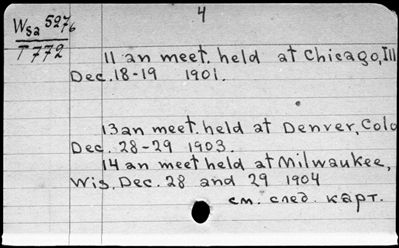 4
Wsa 527/6
T772
11 an meet. held at Chicago, Ill
Dec. 18-19 1901.
13 an meet. held at Denver, Colo
Dec. 28-29 1903.
14 an meet held at Milwaukee,
Wis. Dec. 28 and 29 1904
см. след. карт.